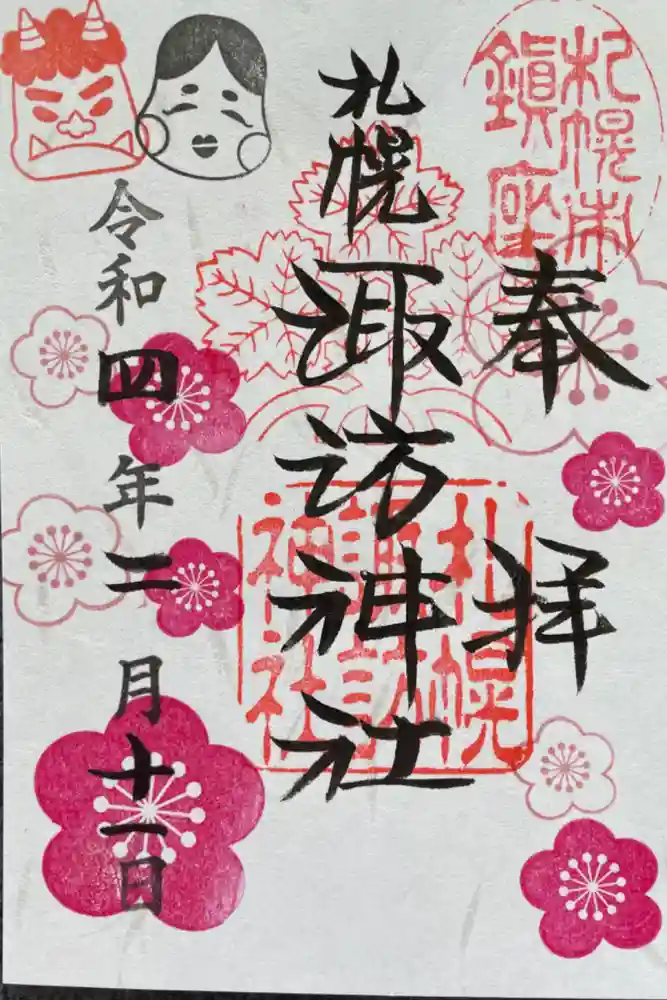 札幌市
鎮座
奉拝
札幌諏訪神社
札幌
諏訪
神社
令和四年二月十一日